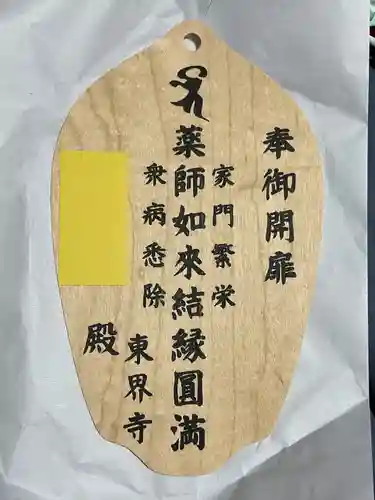 奉御開扉
家門繁栄
薬師如来結縁圓満
衆病悉除
東界寺
殿